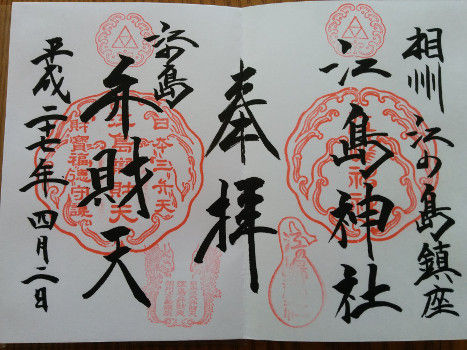 相州 江の島鎮座
江島神社
奉拝
江島
弁財天
平成二十七年 四月二日
日本三弁天
江島弁財天
財寶福徳守護